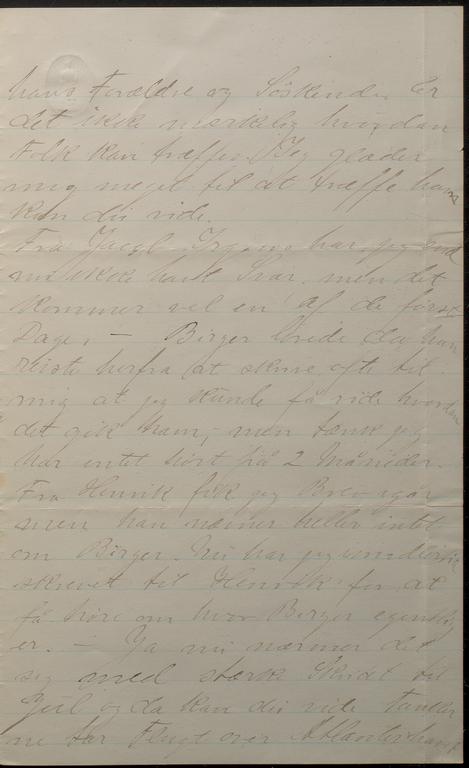 hans Forældre og Söskinde. Er
det ikke mærkelig hvordan
Folk kan træffes. Jeg glæder
mig meget til at træffe ham
kan du vide.
Fra Jacob Irgens har jeg end
nu ikke havt Svar, men det
kommer vel en af de förste
Dage, — Birger lovede da han
reiste herfra at skrive ofte til
mig at jeg kunde få vide hvordan
det gik ham, men tænk jeg
har intet hört på 2 Måneder.
Fra Henrik fik jeg Brev igår
men han nævner heller intet
om Birger. Nu har jeg
skrevet til Henrik for at
få höre om hvor Birger egentlig
er. — Ja nu nærmer det
sig med stærke Skridt til
Jul og da kan du vide Tanker
ne tar Flugt over Atlanterhavet